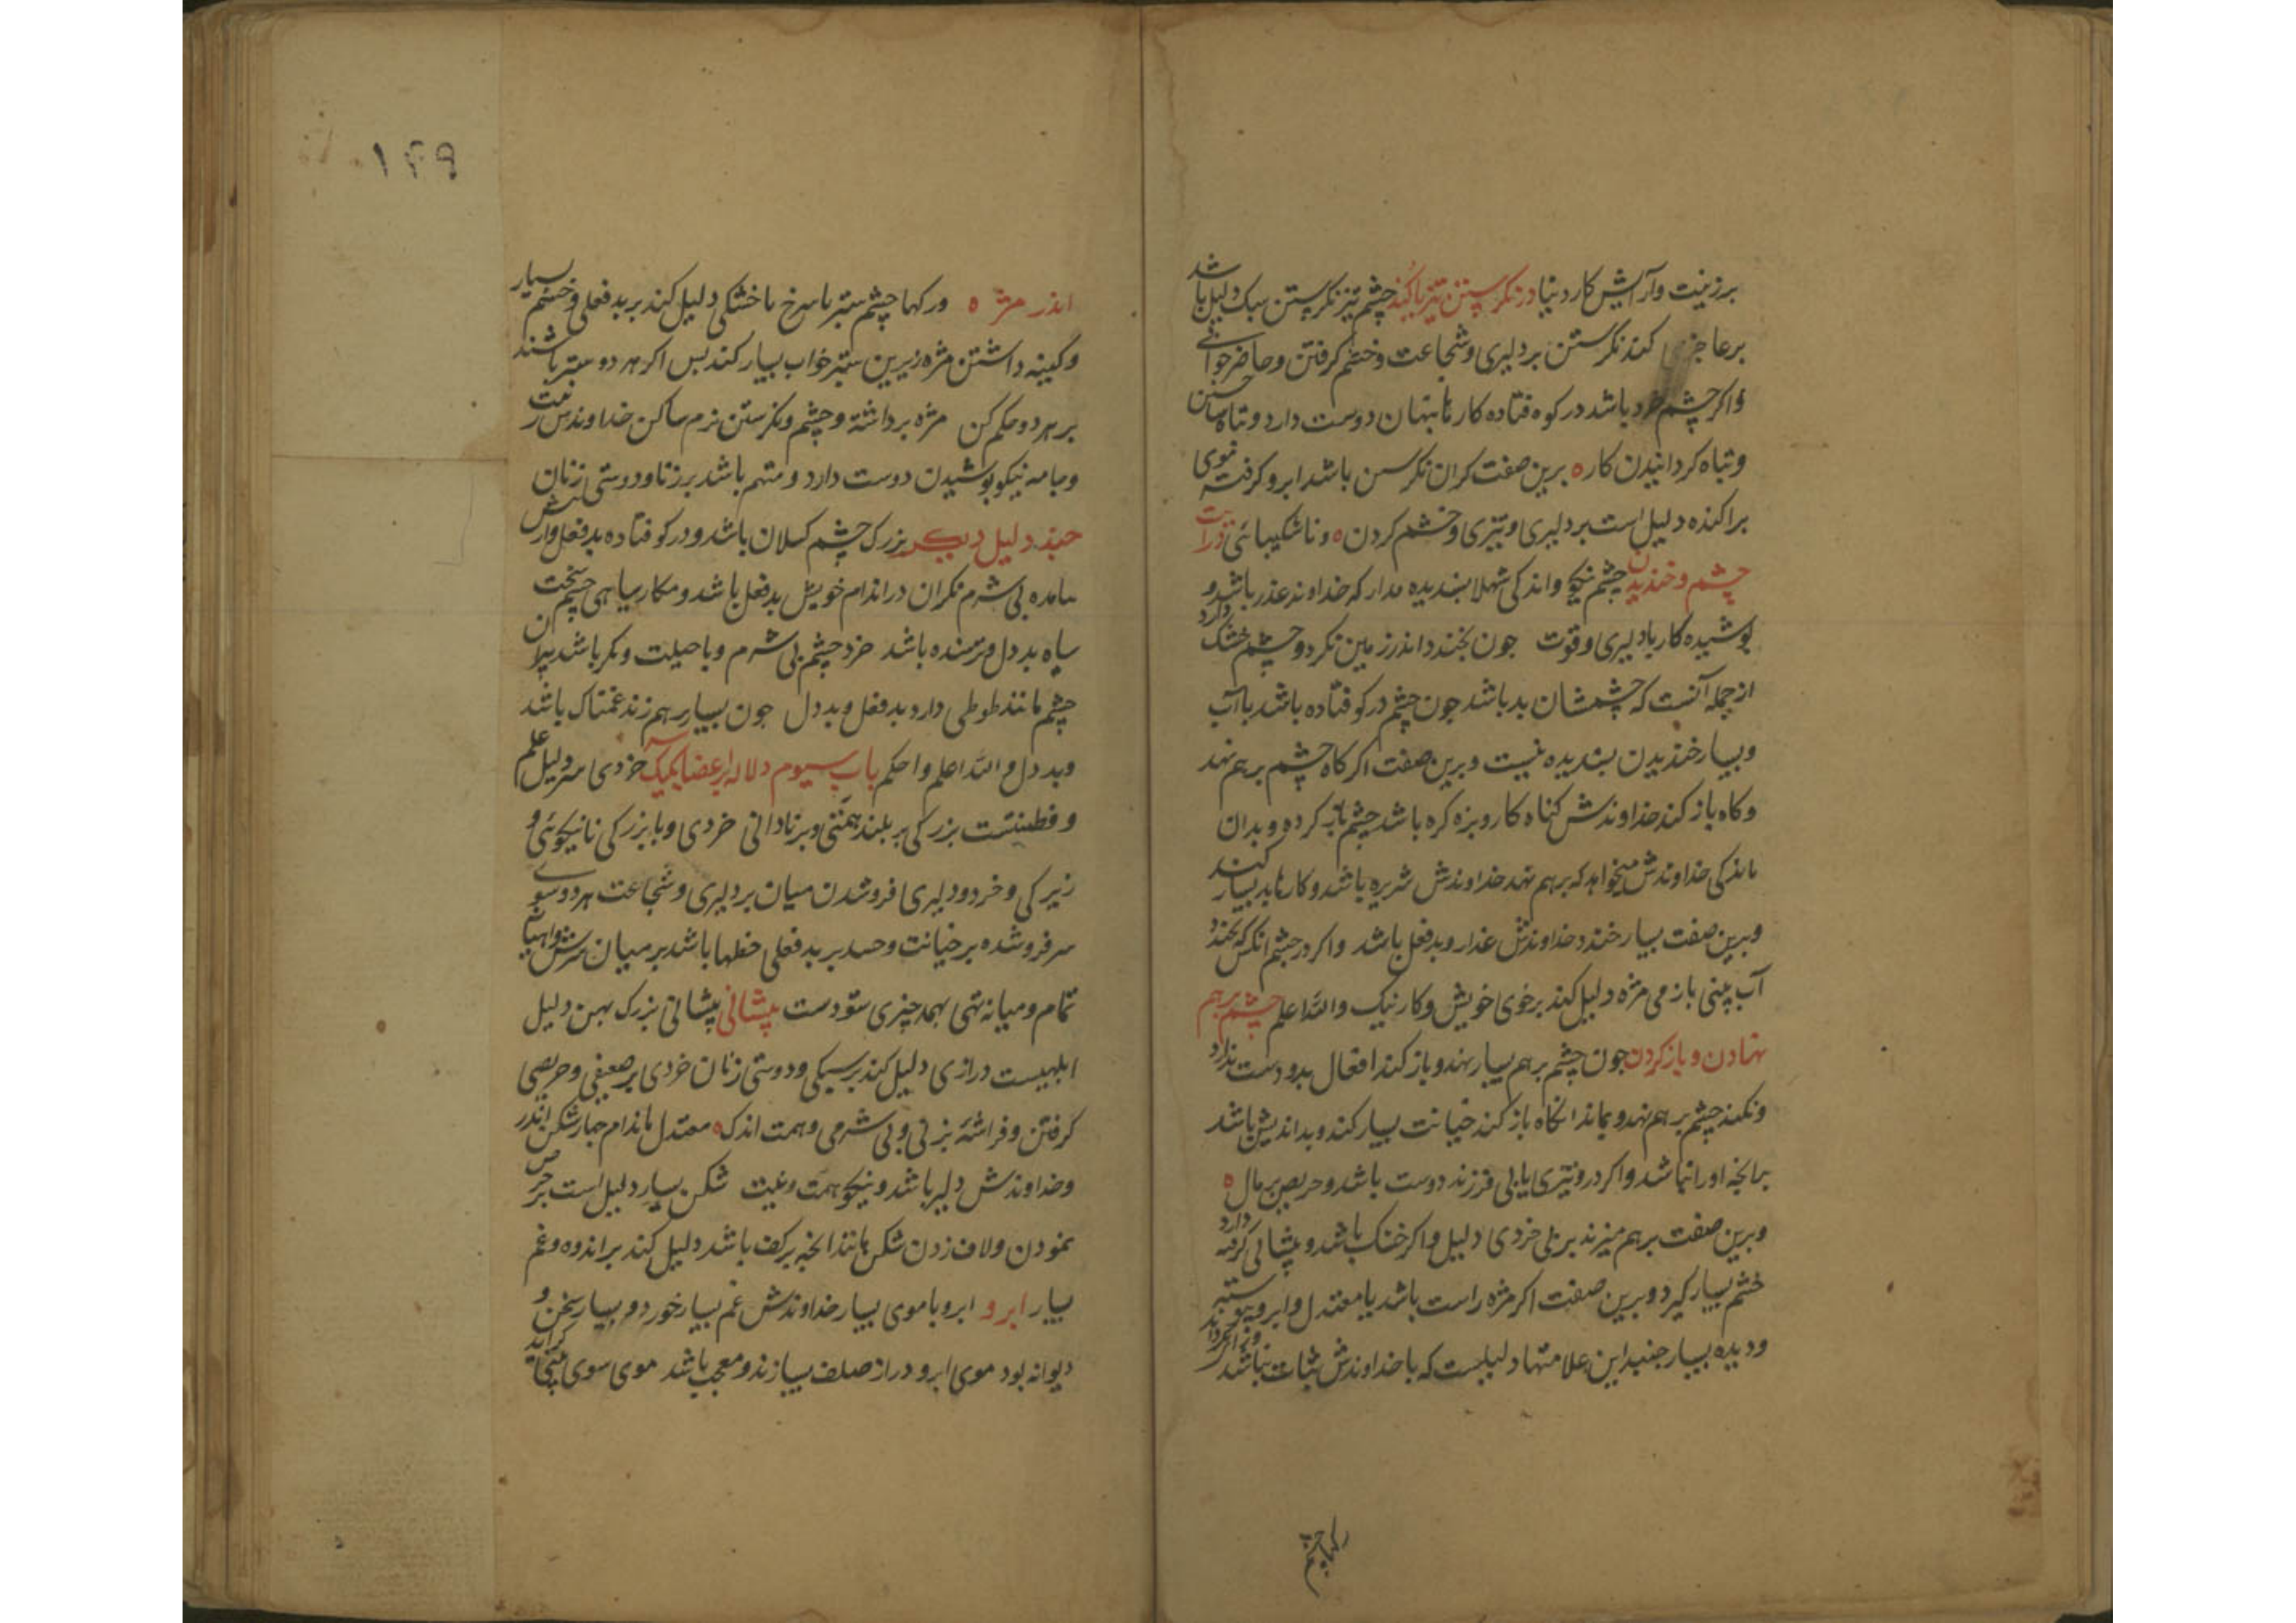 بر زینت و آرایش کار دنیا در نکرستن تیز با کند چشم تیز نکرستن سبک دلیل باشد
بر عاجزی کند نکرستن بر دلیری و شجاعت و خشم کرفتن و حاضر جوابی
و اکر چشم خرد باشد در کوه فتاده کارها بنهان دوست دارد و تباه
و تباه کردانیدن کار ه برین صفت کران نکرستن باشد ابرو کرفته قوی
براکنده دلیل است بر دلیری و تیزی و خشم کردن ه و ناشکیبائی
چشم و خندیدن چشم نیکو و اندکی شهلا بسندیده مدار که خداوند غدر باشد و
بوشیده کار با دلیری و قوت جون بخندد اندر زمین نکرد و چشم خشک دارد
از جمله آنست که چشمشان بد باشد جون چشم در کو فتاده باشد با آب
و بسیار خندیدن بسندیده نیست و برین صفت اکر کاه چشم بر هم نهد
و کاه باز کند خداوندش کناه کار و بزه کره باشد چشم باز کرده و بدان
ماند کی خداوندش میخواهد که بر هم نهد خداوندش شریره باشد و کارها بد بسیار کند
و برین صفت بسیار خندد خداوندش غدار و بد فعل باشد و اکر در چشم انکس که بخندد
آب بینی بازمی مژه دلیل کند بر خوی خویش و کار نیک والله اعلم چشم بر هم
نهادن و باز کردن جون چشم بر هم بسیار نهد و باز کند افعال بد و دست ندارد
و نکند چشم بر هم نهد و بماند انکاه باز کند خیانت بسیار کند و بد اندیش باشد
بر انچه او را نباشد و اکر در و تیزی یابی فرزند دوست باشد و حریص بر مال ه
و برین صفت بر هم میزند بر بلی خردی دلیل و اکر خشک باشد و بیشانی کرفته دارد
خشم بسیار کیرد و برین صفت اکر مژه راست باشد یا معتدل و ابرو بیوسته ستبر
و دیده بسیار جنبد این علامتها دلیلست که با خداوندش ثبات نباشد
رکها چشم
۱۴۹
اندر مژه ه ورکها چشم ستبر با سرخ با خشکی دلیل کند بر بد فعلی و خشم بسیار
و کینه داشتن مژه زیرین ستبر خواب بسیار کند بس اکر هر دو ستبر باشند
بر هر دو حکم کن مژه برداشته و چشم و نکرستن نرم ساکن خداوندش
و جامه نیکو بوشیدن دوست دارد و متهم باشد بر زنا و دوستی زنان
چند دلیل دیکر بزرک چشم کسلان باشد و در کو فتاده بد فعل و
آمده بی شرم نکران در اندام خویش بد فعل باشد و مکار سیاهی چشم سخت
سیاه بد دل و ترسنده باشد خرد چشم بی شرم و با حیلت و نکر باشد
چشم مانند طوطی دارد بد فعل و بد دل جون بسیار بر هم زند غمناک باشد
و بد دل والله اعلم و احکم باب سیوم دلاله بر اعضا یک یک خردی سر دلیل علم
و فطنتست بزرکی بر بلند همتی و بر نادانی خردی و با بزرکی نا نیکوئی و
زیرکی و خرد و دلیری فروشدن میان بر دلیری و شجاعت هر دو سوی
سر فرو شده بر خیانت و حسد بر بد فعلی خطها باشد بر میان سرش
تمام و میانه تهی بهمه چیزی ستودست بیشانی بیشانی بزرک بهن دلیل
ابلهیست درازی دلیل کند بر سبکی و دوستی زنان خردی بر ضعیفی و حریصی
کرفتن و فراشته بزنی و بی شرمی و همت اندک ه معتدل باندام چهار شکن اندر
و خداوندش دلیر باشد و نیکو همت و غیت شکن بسیار دلیل است بر حرص
نمودن و لاف زدن شکن مانند انچه بر کف باشد دلیل کند بر اندوه و غم
بسیار ابرو ابرو با موی بسیار خداوندش غم بسیار خورد و بسیار سخن و
دیوانه بود موی ابرو دراز صلف بسیار زند و معجب باشد موی سوی بینی کراید